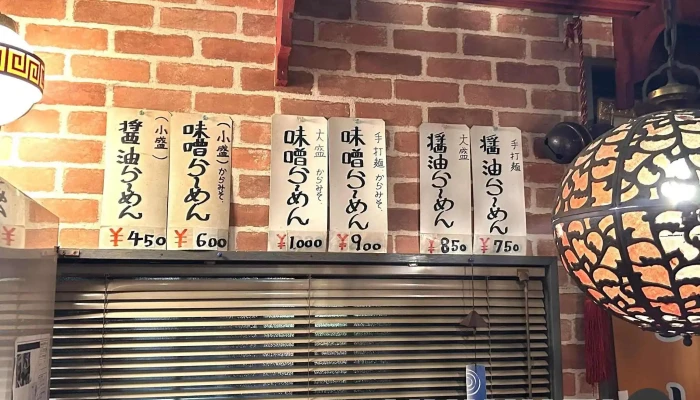 手打麺
醤油らーめん
¥750
大盛
醤油らーめん
¥850
手打麺 からみそ
味噌らーめん
¥900
大盛 からみそ
味噌らーめん
¥1,000
(小盛) からみそ
味噌らーめん
¥600
(小盛)
醤油らーめん
¥450